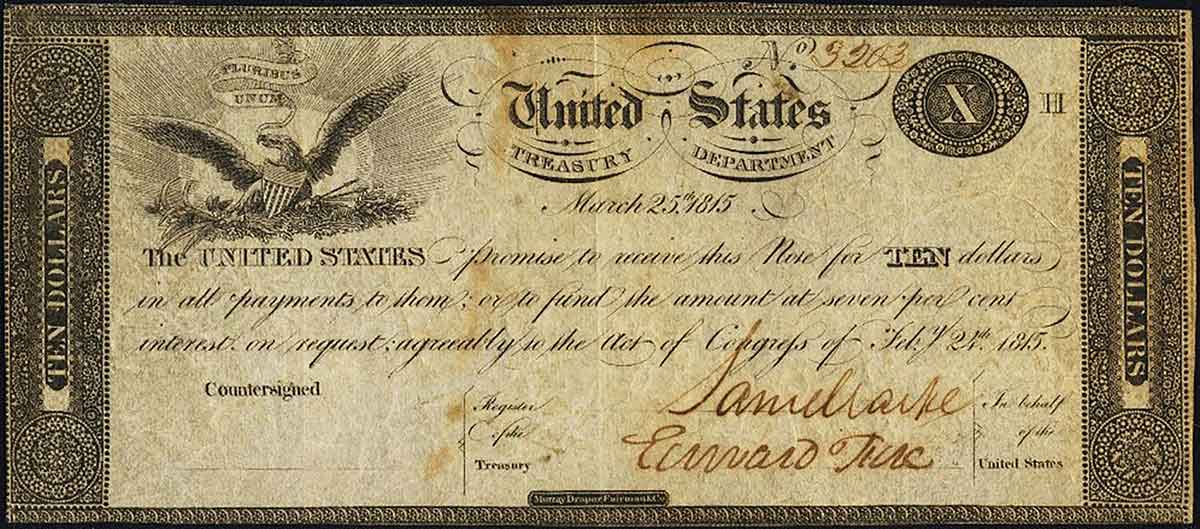 PLURIBUS
UNUM
No. 3203
United States
TREASURY DEPARTMENT
X
H
March 25th 1815
The UNITED STATES promise to receive this Note for TEN dollars
in all payments to them; or to fund the amount at seven per cent
interest, on request; agreably to the Act of Congress of Feby. 24th. 1815.
TEN DOLLARS
TEN DOLLARS
Countersigned
Register
of the
Treasury
Saml Clarke
Edward Fox
In behalf
of the
United States
Murray Draper Fairman & Co